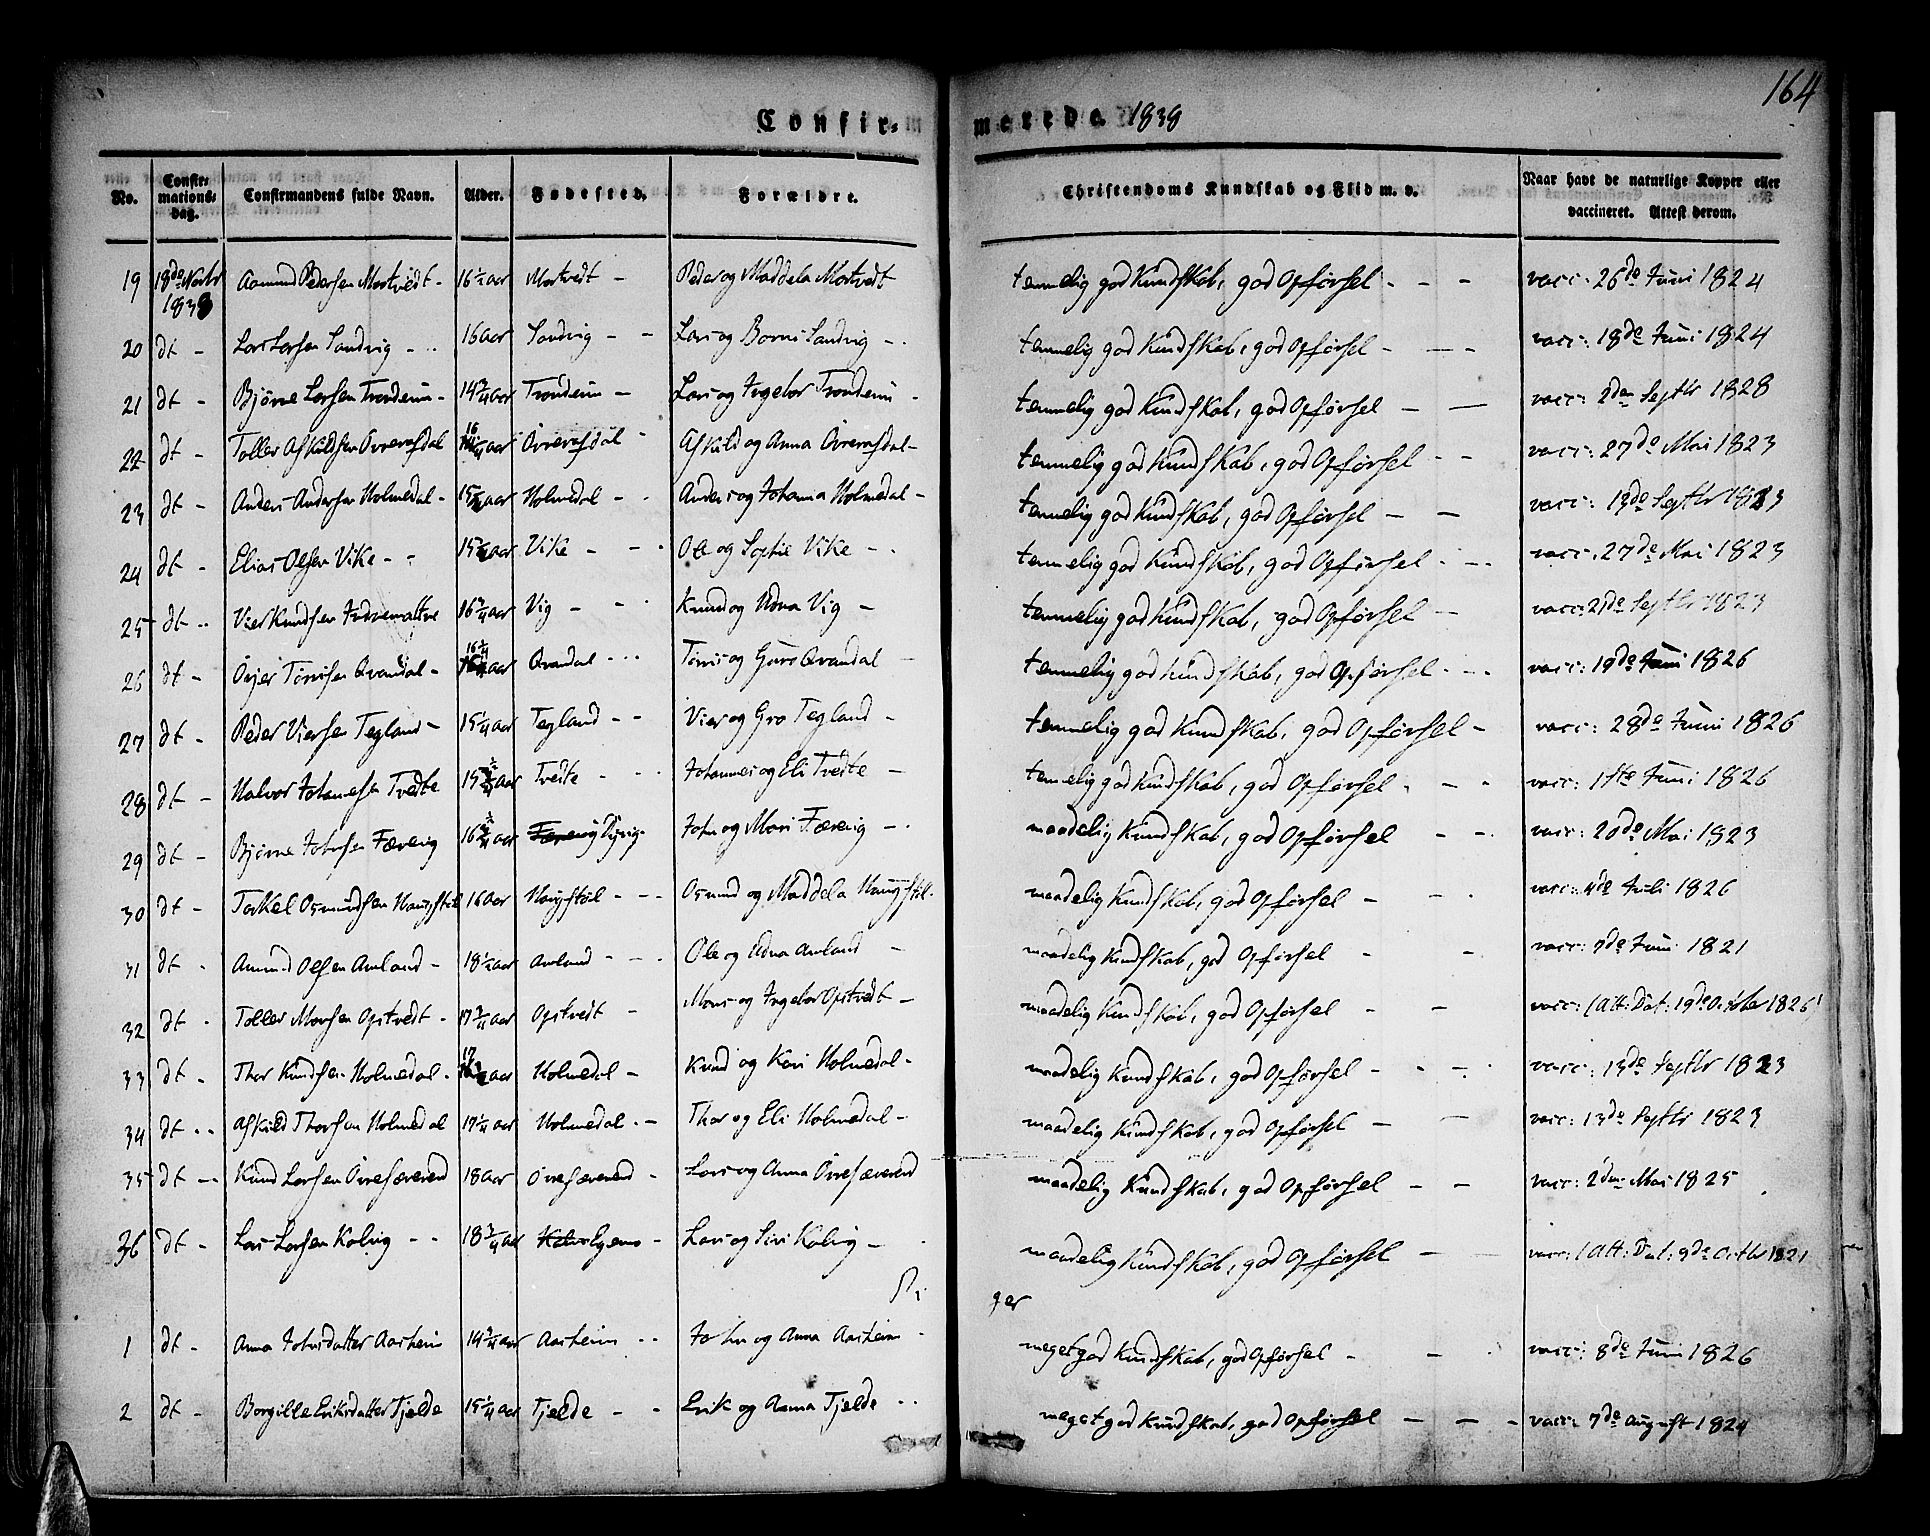 164
Confirmerede. 1838
No. Confirmationsdag. Confirmandens fulde Navn. Alder. Fødested. Forældre. Christendoms Kundskab og Flid m. v. Naar havt de naturlige Kopper eller vaccineret. Attest derom.
19 18de Novbr 1838 Aamund Pedersen Mortvedt - 16 1/2 aar Mortvedt - Peder og Maddela Mortvedt temmelig god Kundskab, god Opførsel - - - vacc: 26de Juni 1824
20 dt - Lars Larsen Sandvig - 16 aar Sandvig - - Lars og Borni Sandvig - temmelig god Kundskab, god Opførsel - - - vacc: 18de Juni 1824
21 dt - Bjørne Larsen - 14 3/4 aar - Lars og Ingebor - temmelig god Kundskab, god Opførsel - - vacc: 2den Septbr 1828
22 dt - Tollev Askildsen 16 aar - Askild og Anna - temmelig god Kundskab, god Opførsel - - vacc: 27de Mai 1823
23 dt - Anders Andersen Holmedal - 15 aar Holmedal - - Anders og Johanna Holmedal - temmelig god Kundskab, god Opførsel - - vacc: 13de Septbr 1823
24 dt - Elias Olsen Vike - - 15 aar Vike - - - Ole og Sophie Vike - - temmelig god Kundskab, god Opførsel - - - vacc: 27de Mai 1823
25 dt - - Vier Knudsen 16 3/4 aar Vig - - - Knud og Udna Vig - temmelig god Kundskab, god Opførsel - vacc: 21de Septbr 1823
26 dt - Tørrisen Qvandal - 16 1/4 aar Qvandal - - - Tørris og Guro Qvandal - temmelig god Kundskab, god Opførsel - - - vacc: 19de Juni 1826
27 dt - Peder Viersen Tegland - 15 1/4 aar Tegland - - Vier og Gro Tegland - temmelig god Kundskab, god Opførsel - vacc: 28de Juni 1826
28 dt - Halvor Johannesen Tvedte 15 1/2 aar Tvedte - - - Johannes og Eli Tvedte - temmelig god Kundskab, god Opførsel - - - vacc: 1ste Juni 1826
29 dt - Bjørne Johnsen Færevig 16 1/2 aar John og Mari Færevig - - maadelig Kundskab, god Opførsel - - vacc: 20de Mai 1823
30 dt - Torkel Osmundsen Haugstøl 16 aar Haugstøl - - - Osmund og Maddela Haugstøl - maadelig Kundskab, god Opførsel - - - vacc: 4de Juli 1826
31 dt - Amund Olsen Amland - 18 1/2 aar Amland - - - Ole og Udna Amland - maadelig Kundskab, god Opførsel - - vacc: 7de Juni 1821
32 dt - Tollev Monsen Opstvedt - 17 3/4 aar Opstvedt - Mons og Ingebor Opstvedt - maadelig Kundskab, god Opførsel - - vacc: (Att: Dat: 19de Octbr 1826)
33 dt - Thor Knudsen Holmedal - 17 aar Holmedal - Knud og Kari Holmedal - maadelig Kundskab, god Opførsel - - - vacc: 13de Septbr 1823
34 dt - - Askild Thorsen Holmedal 17 1/4 aar Holmedal - - Thor og Eli Holmedal - maadelig Kundskab, god Opførsel - - vacc: 13de Septbr 1823
35 dt - - Knud Larsen Øvrefæreved 18 aar Øvrefæreved - Lars og Anna Øvrefæreved maadelig Kundskab, god Opførsel - - vacc: 2den Mai 1825
36 dt - Lars Larsen Kalvig - - 18 3/4 aar - Lars og Siri Kalvig - maadelig Kundskab, god Opførsel - - vacc: (Att: Dat: 9de Octbr 1821
Piger
1 dt - Anna Johnsdatter Aarheim 14 3/4 aar Aarheim - - John og Anna Aarheim - meget god Kundskab, god Opførsel - - - vacc: 8de Juni 1826
2 dt - Borgille Eriksdatter Tjelde 15 1/4 aar Tjelde - - Erik og Anna Tjelde - - meget god Kundskab, god Opførsel - - - vacc: 7de August 1824